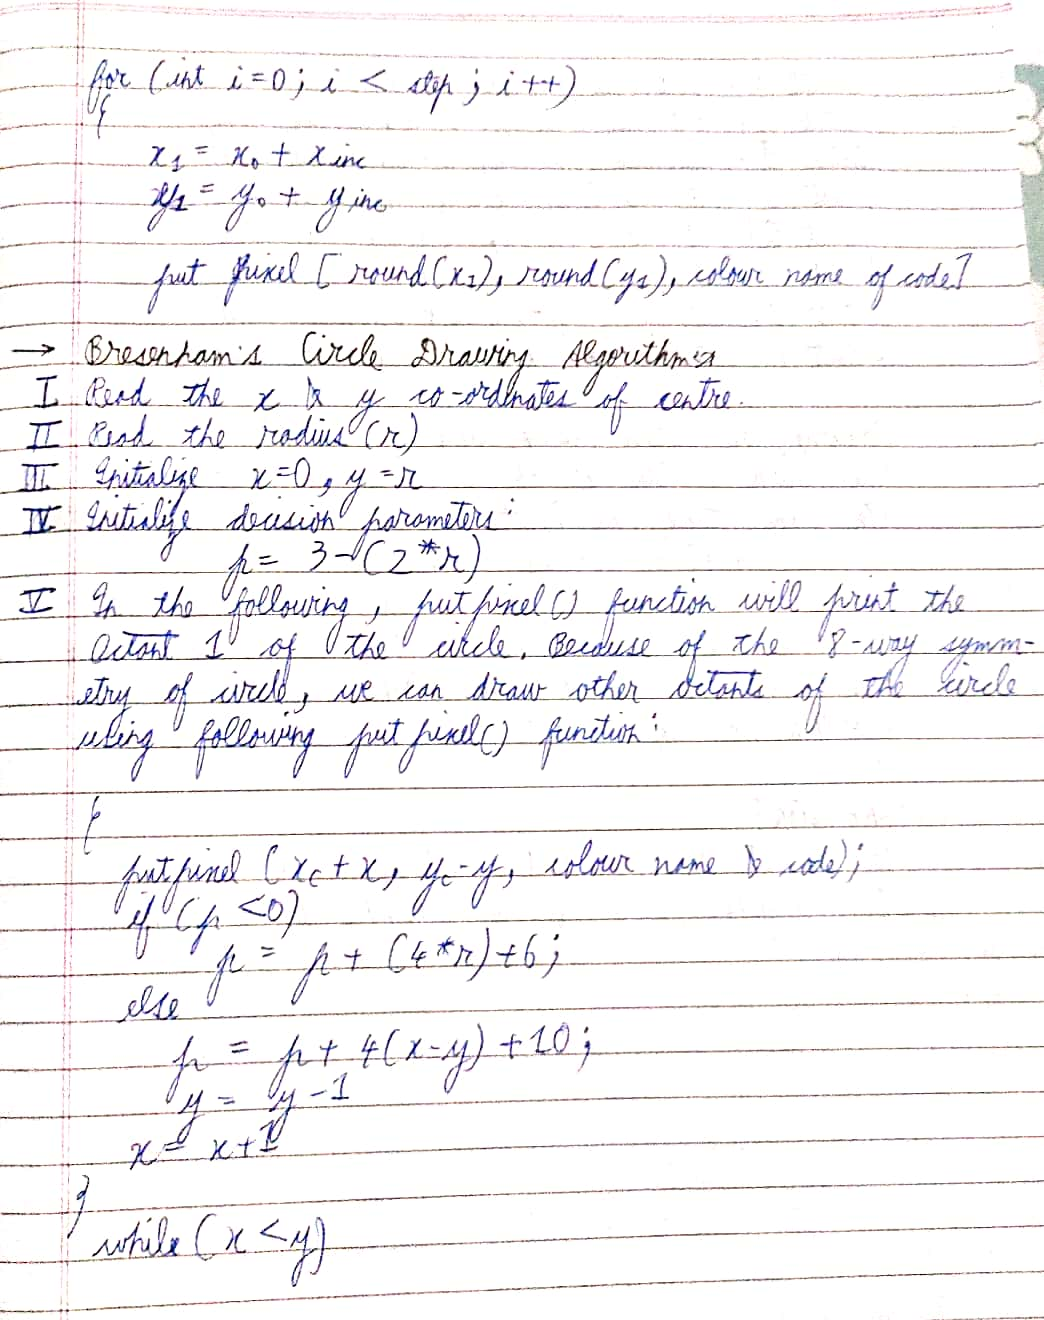 for (int i=0; i < step; i++)
{
x₁ = x₀ + xinc
y₁ = y₀ + yinc
put pixel [round(x₁), round(y₁), colour name of code]
→ Bresenham's Circle Drawing Algorithms
I Read the x & y co-ordinates of centre.
II Read the radius (r)
III Initialize x=0, y=r
IV Initialize decision parameters:
p = 3-(2*r)
V In the following, putpixel() function will print the
Octant 1 of the circle. Because of the 8-way symm-
etry of circle, we can draw other octants of the circle
using following put pixel() function:
{
putpixel (xc+x, yc-y, colour name & code);
if (p<0)
p = p + (4*r)+6;
else
p = p+4(x-y)+10;
y = y-1
x = x+1
}
while (x<y)